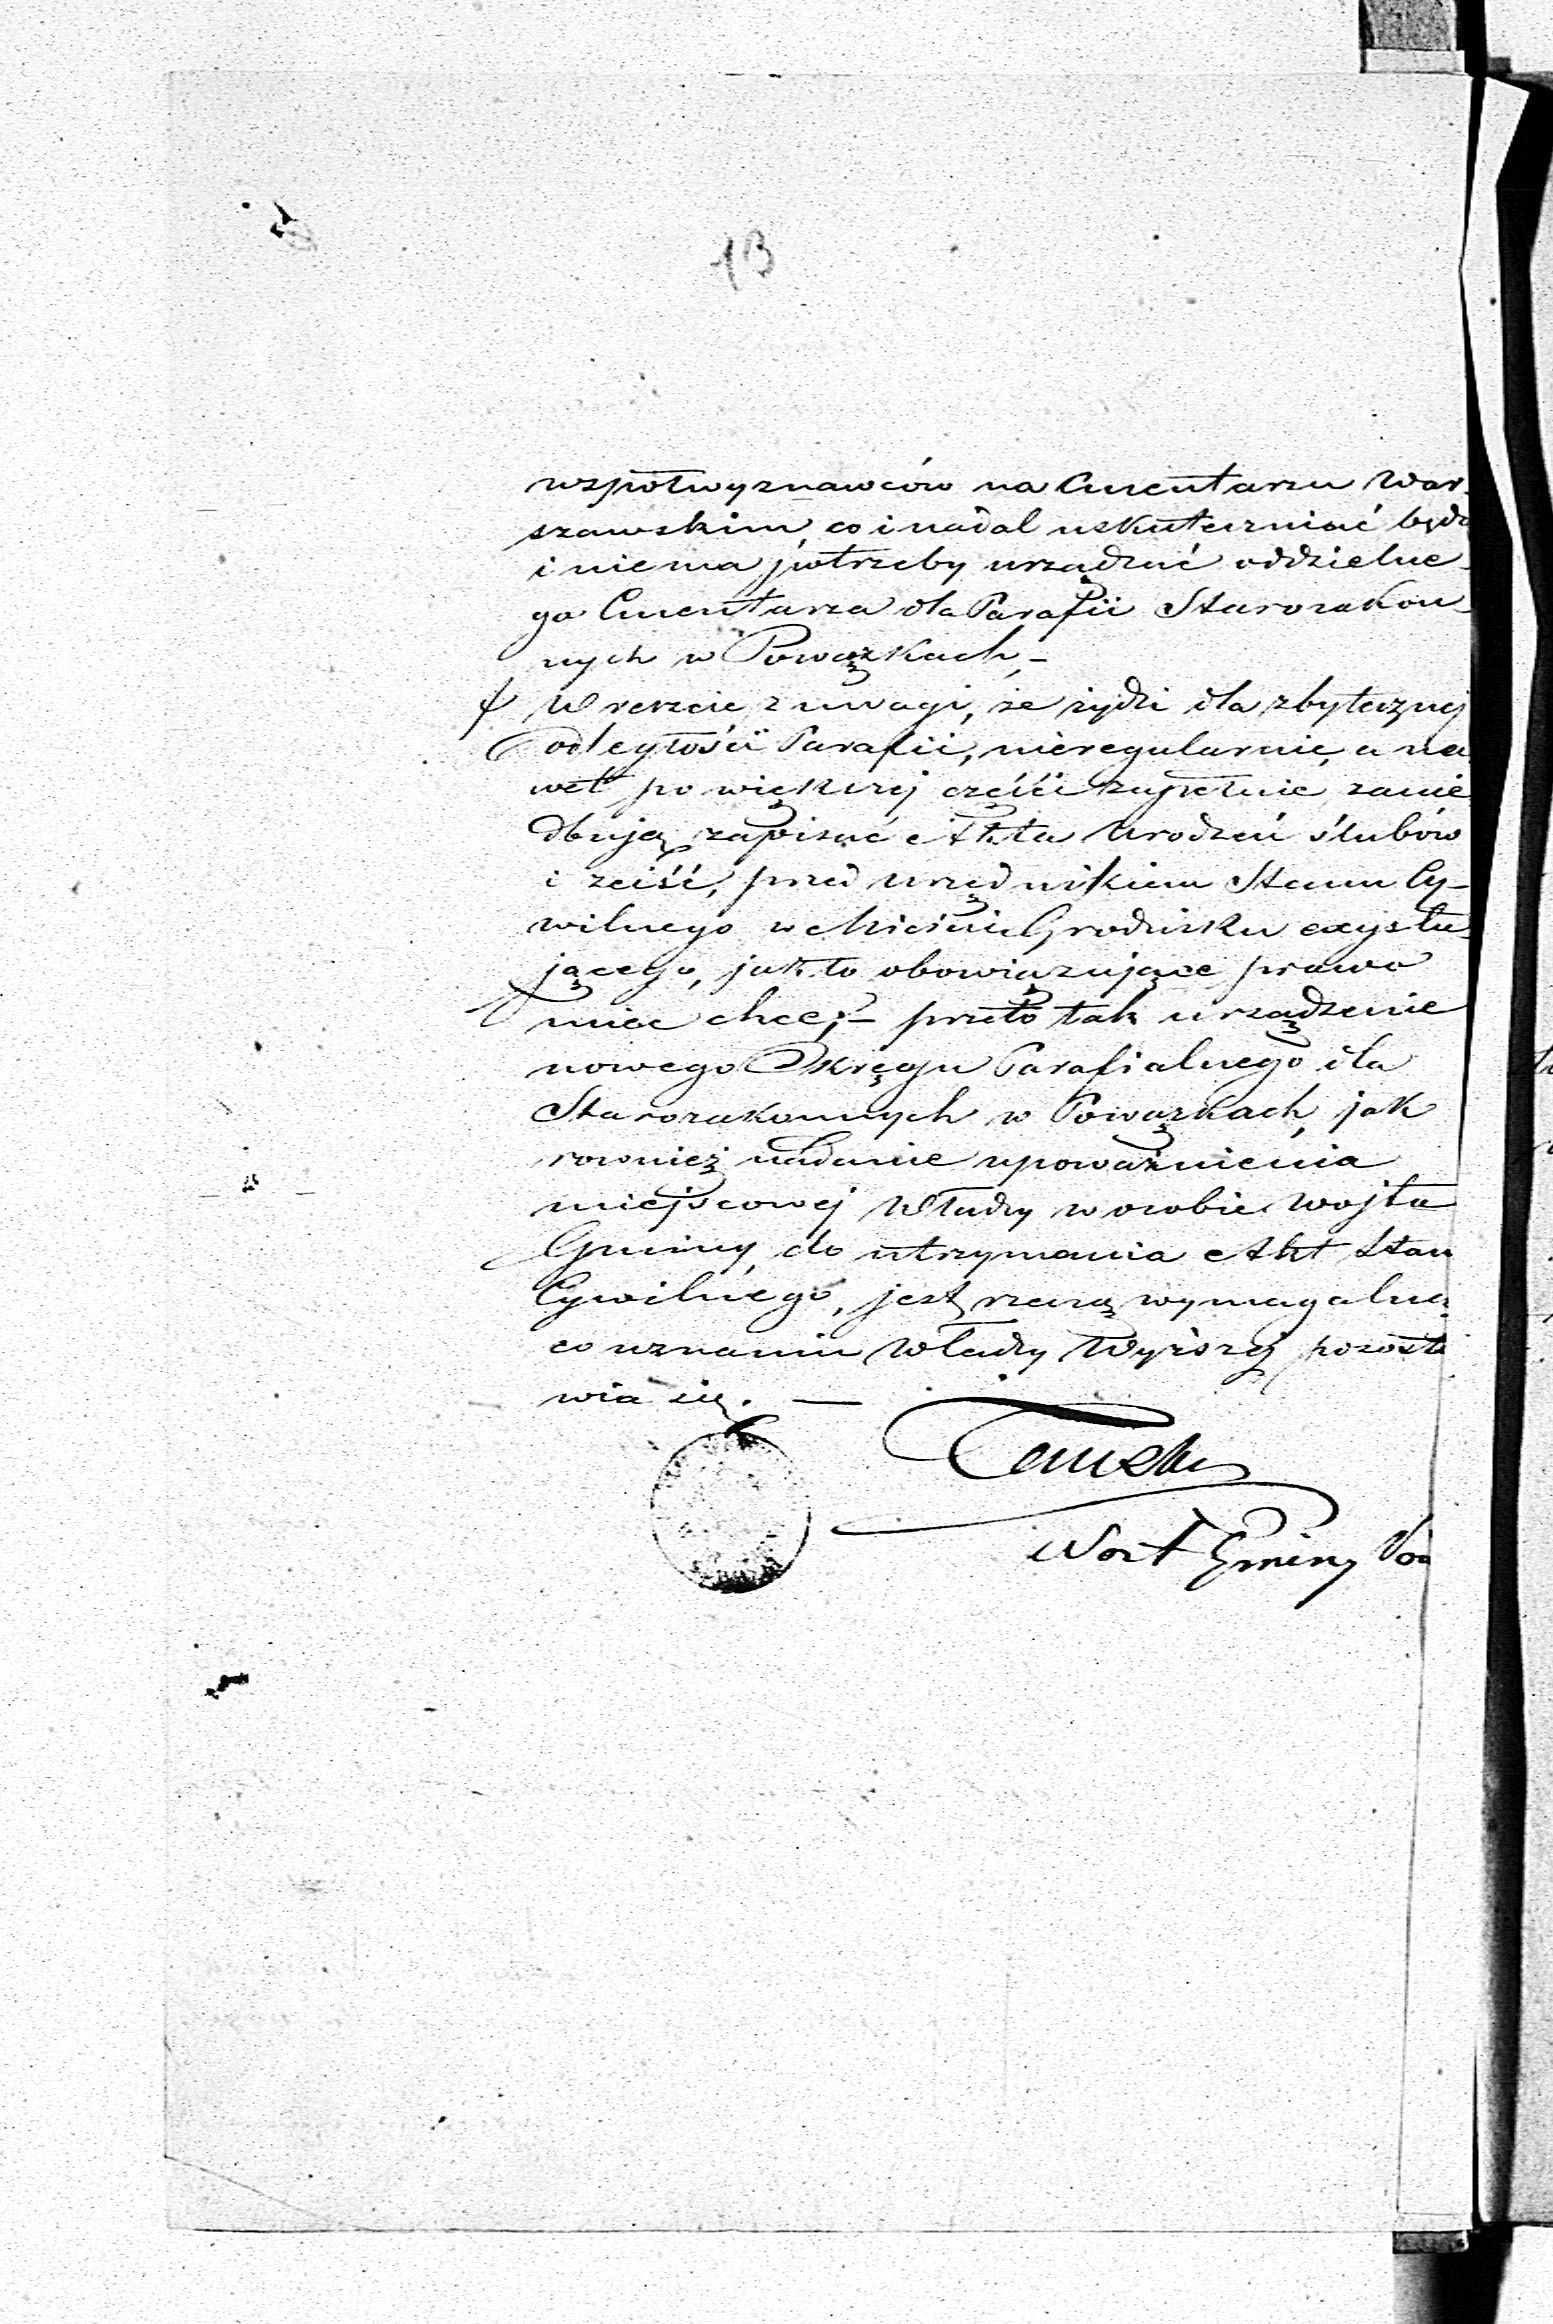 13
wspołwyznawców na Cmentarzu War-
szawskim, co i nadal uskuteczniać będą
i niema potrzeby urządzać oddzielne-
go Cmentarza dla Parafii Starozakon-
nych w Powązkach, -
W reszcie z uwagi, że żydzi dla zbytecznej
odległości Parafii, nieregularnie, a na
wet po większej części zupełnie zanie
dbują zapisać Akta Urodzeń ślubów
i zejść, przed urzędnikiem Stanu Cy-
wilnego w Mieście Grodzisku exystu-
jącego, jak to obowiązujące prawo
mieć chce, - przeto tak urządzenie
nowego Okręgu Parafialnego dla
Starozakonnych w Powązkach, jak
rownież nadanie upoważnienia
miejscowej Władzy w osobie Wojta
Gminy, do utrzymania Akt Stan
Cywilnego, jest rzeczą wymagalną
co uznaniu Władzy Wyższej pozosta
wia się. —
Wojt Gminy